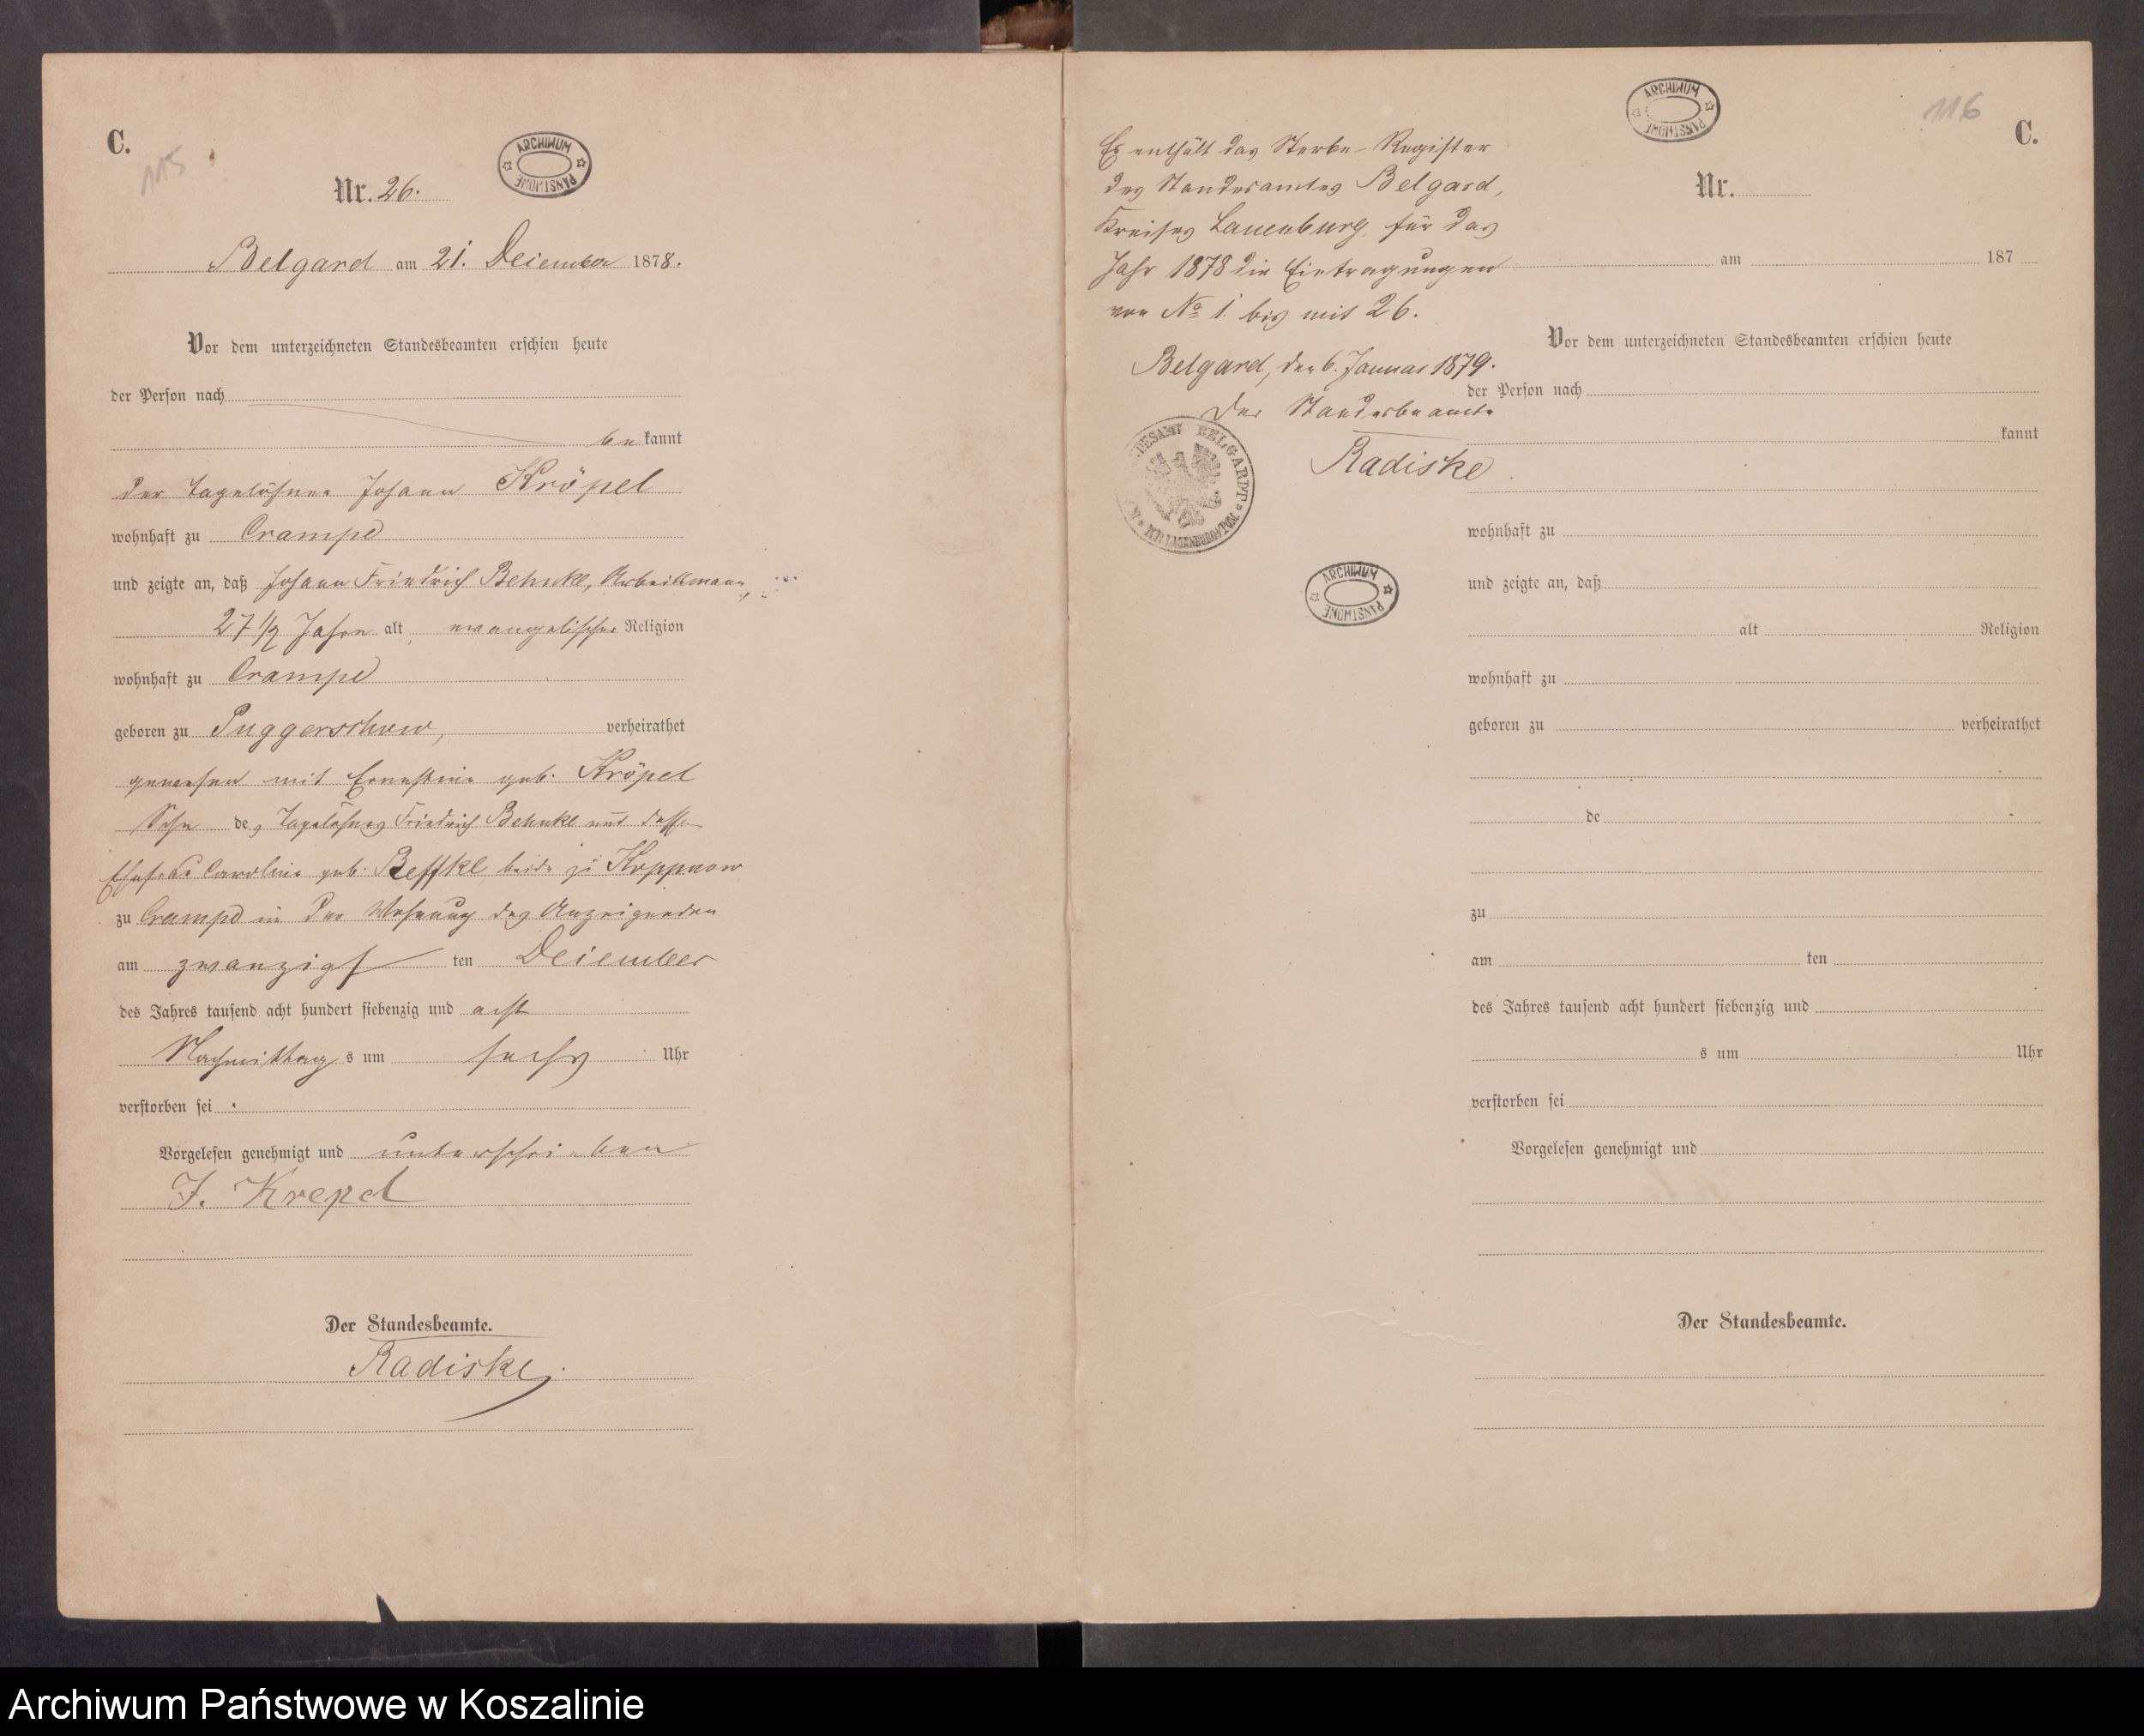 C.
115
ARCHIWUM PAŃSTWOWE
Nr. 26.
Belgard am 21. Dezember 1878.
Vor dem unterzeichneten Standesbeamten erschien heute
der Person nach
bekannt
der Tagelöhner Johann Kröpel
wohnhaft zu Crampe
und zeigte an, daß Johann Friedrich Behnke, Arbeitsmann,
27 1/2 Jahre alt, evangelischer Religion
wohnhaft zu Crampe
geboren zu Puggerschow, verheirathet
gewesen mit Ernestine geb. Kröpel
Sohn des Tagelöhners Friedrich Behnke und dessen
Ehefrau Caroline geb. Beffke beide zu Koppnow
zu Crampe in der Wohnung des Anzeigenden
am zwanzigsten Dezember
des Jahres tausend acht hundert siebenzig und acht
Nachmittags um sechs Uhr
verstorben sei.
Vorgelesen genehmigt und unterschrieben
J. Krepel
Der Standesbeamte.
Radiske.
116
C.
ARCHIWUM PAŃSTWOWE
Es enthält das Sterbe-Register
des Standesamtes Belgard,
Kreises Lauenburg, für das
Jahr 1878 die Eintragungen
von No 1. bis mit 26.
Belgard, den 6. Januar 1879.
Der Standesbeamte
Radiske
STANDESAMT BELGARD * KR. LAUENBURG
ARCHIWUM PAŃSTWOWE
Nr.
am 187
Vor dem unterzeichneten Standesbeamten erschien heute
der Person nach
kannt
wohnhaft zu
und zeigte an, daß
alt Religion
wohnhaft zu
geboren zu verheirathet
de
zu
am ten
des Jahres tausend acht hundert siebenzig und
s um Uhr
verstorben sei
Vorgelesen genehmigt und
Der Standesbeamte.
Archiwum Państwowe w Koszalinie